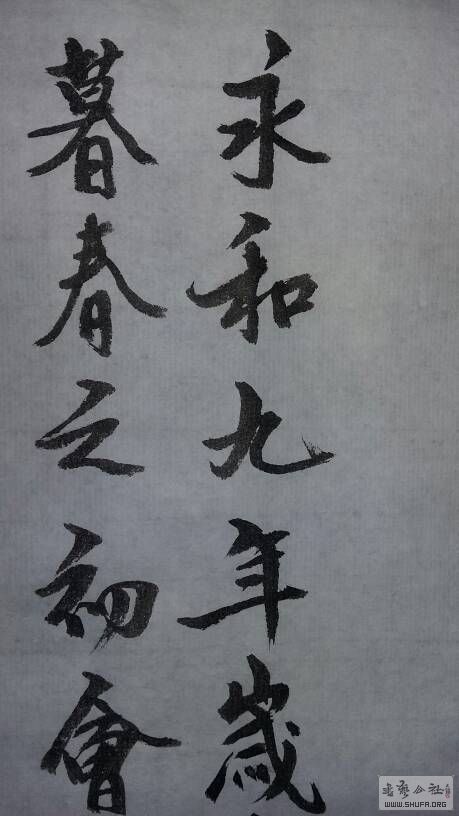 永和九年歲
暮春之初會
書藝公社
WWW.SHUFA.ORG